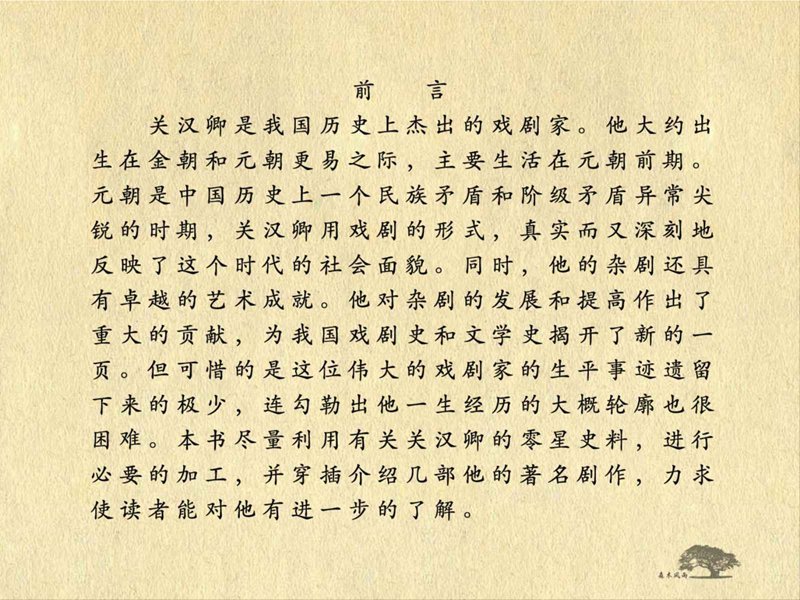 前 言
关汉卿是我国历史上杰出的戏剧家。他大约出
生在金朝和元朝更易之际，主要生活在元朝前期。
元朝是中国历史上一个民族矛盾和阶级矛盾异常尖
锐的时期，关汉卿用戏剧的形式，真实而又深刻地
反映了这个时代的社会面貌。同时，他的杂剧还具
有卓越的艺术成就。他对杂剧的发展和提高作出了
重大的贡献，为我国戏剧史和文学史揭开了新的一
页。但可惜的是这位伟大的戏剧家的生平事迹遗留
下来的极少，连勾勒出他一生经历的大概轮廓也很
困难。本书尽量利用有关关汉卿的零星史料，进行
必要的加工，并穿插介绍几部他的著名剧作，力求
使读者能对他有进一步的了解。
森木风雨